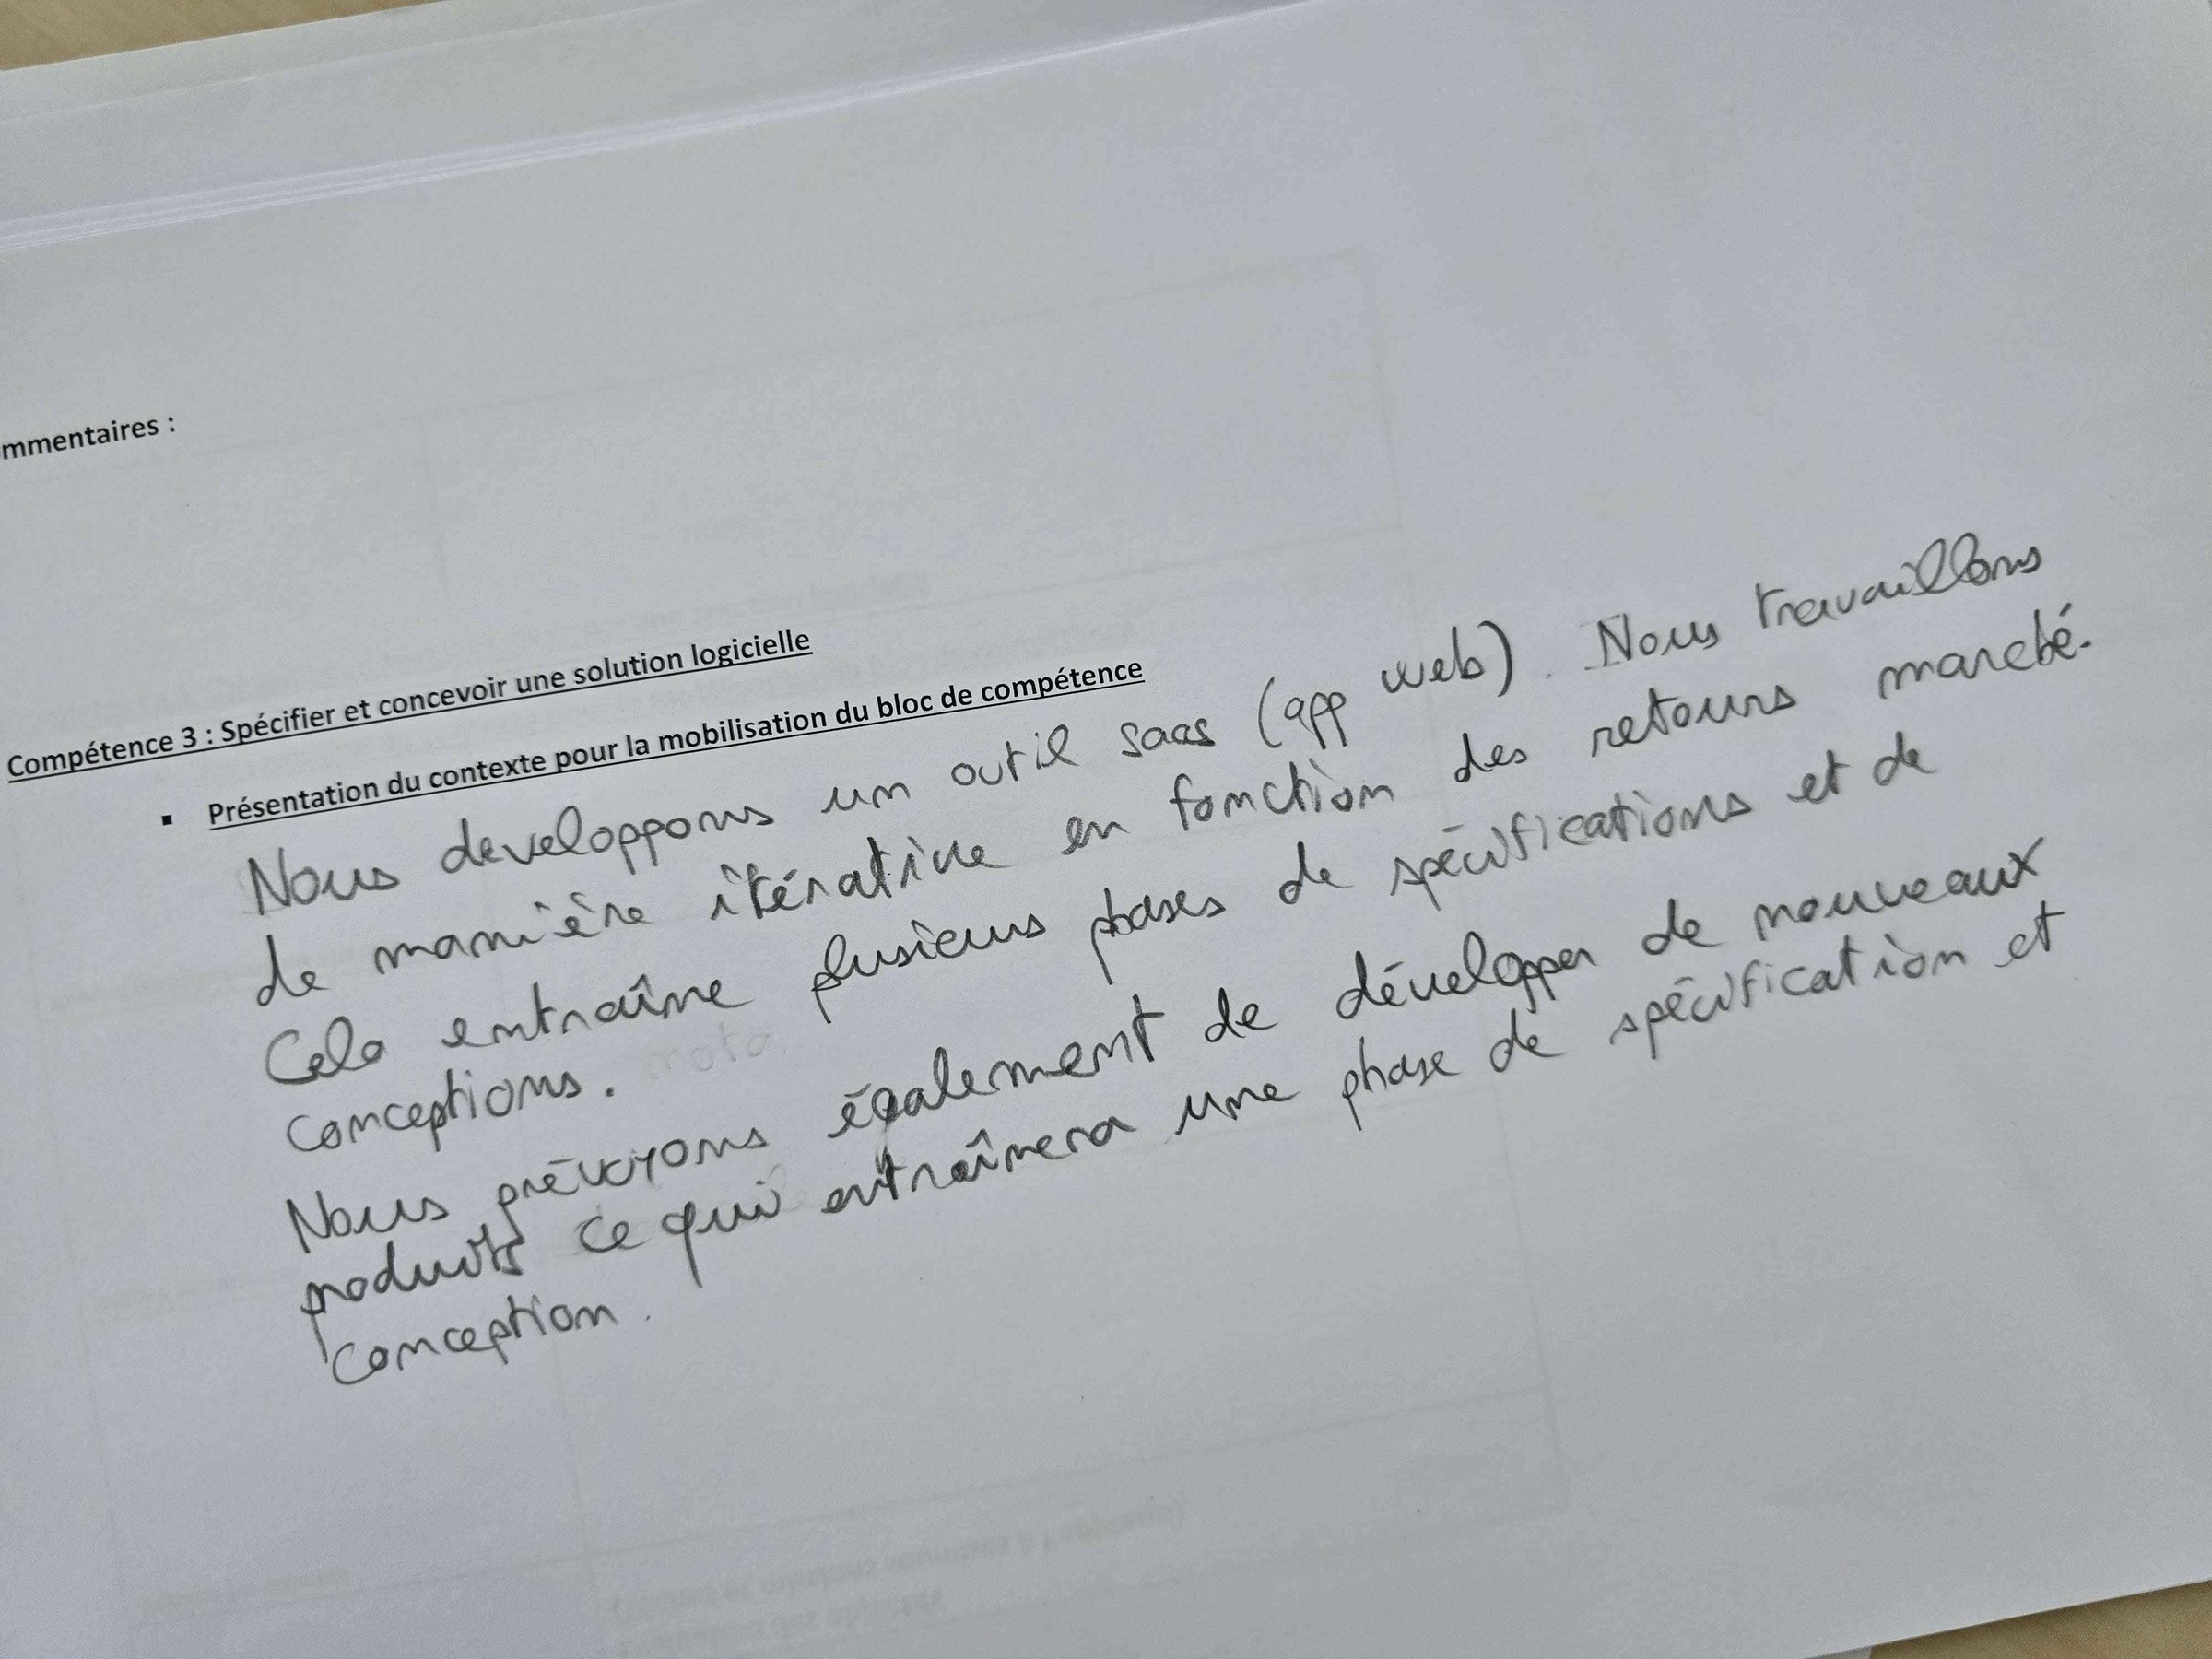 mmentaires :
Compétence 3 : Spécifier et concevoir une solution logicielle
▪ Présentation du contexte pour la mobilisation du bloc de compétence
Nous developpons un outil saas (app web). Nous travaillons
de manière itérative en fonction des retours marché.
Cela entraîne plusieurs phases de spécifications et de
conceptions.
Nous prévoyons également de développer de nouveaux
produits ce qui entraînera une phase de spécification et
conception.